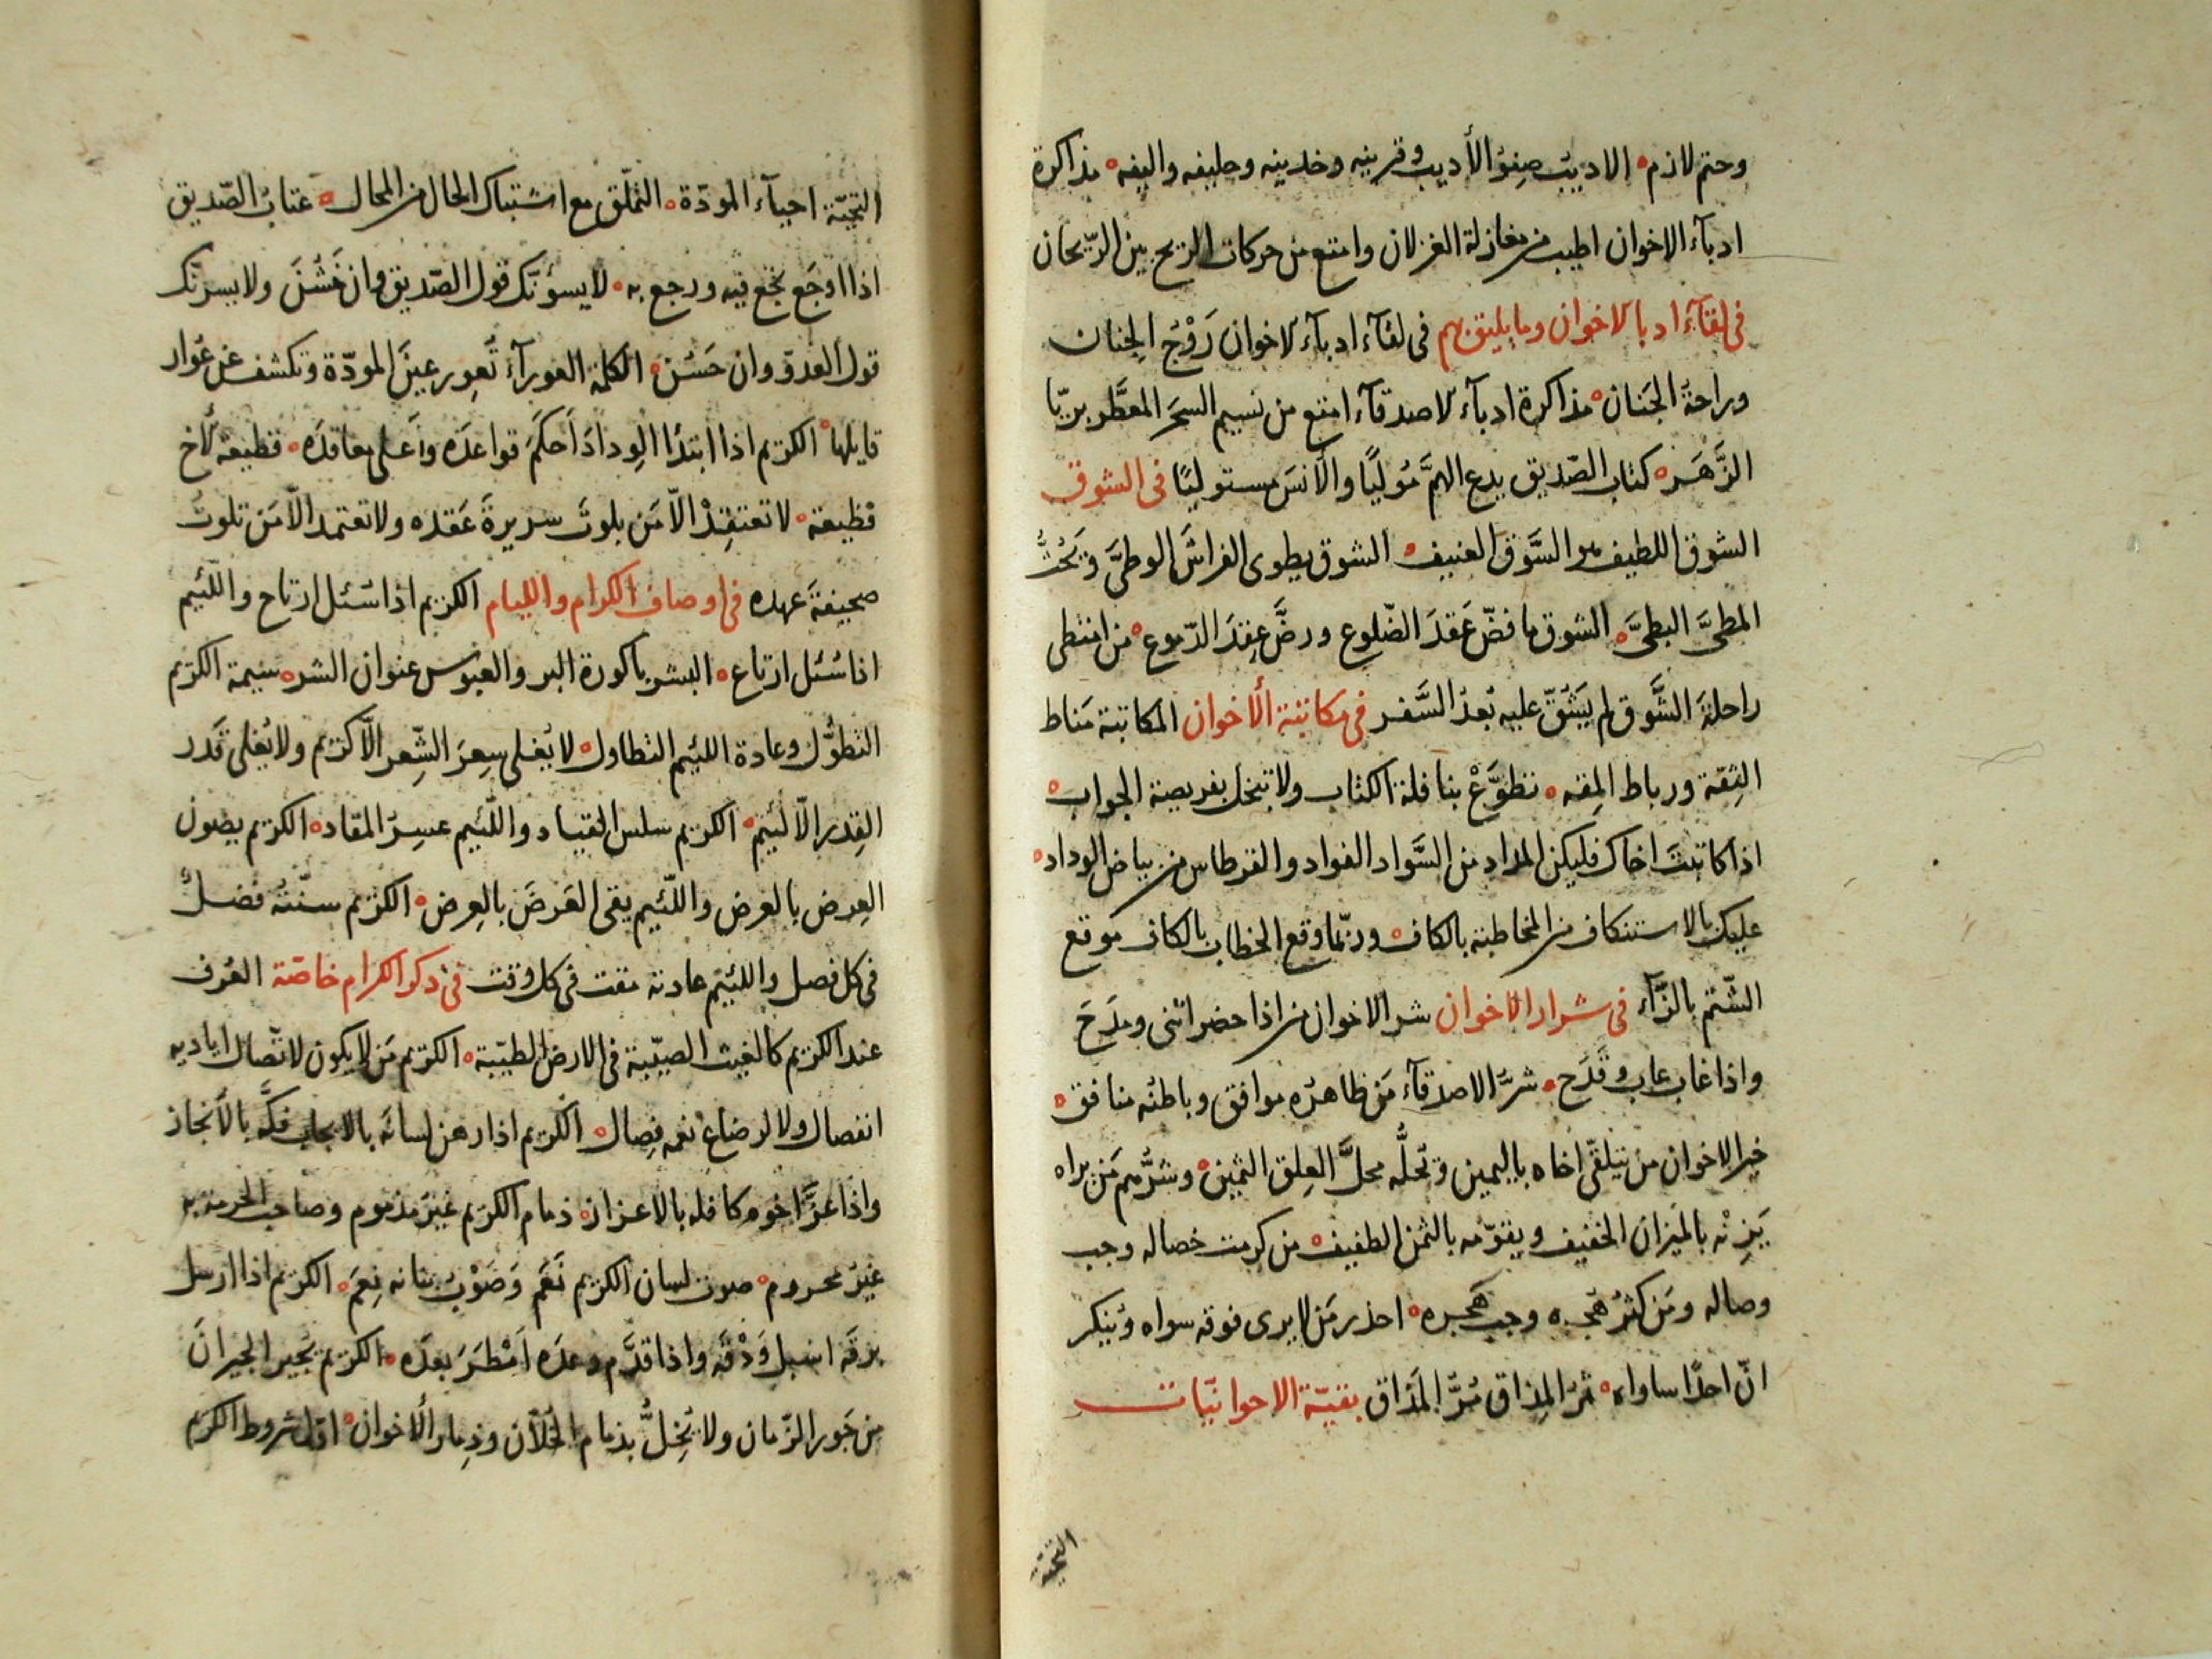 وحتم لازم ه الاديب صنو الأديب وقرينه وخدينه وحليفه واليفه ه مذاكرة
ادبآء الاخوان اطيب من مغازلة الغزلان وامتع من حركات الريح بين الريحان
فى لقآء ادبا الاخوان وما يليق بهم فى لقآء ادبآء الاخوان رَوْحُ الجِنان
وراحةُ الجَنان ه مذاكرة ادبآء الاصدقآء امتع من نسيم السحَر المعطَّر بريّا
الزَّهَر ه كتاب الصّديق يدع الهمَّ مُولّيًا والأنسَ مستوليًا فى الشوق
الشوق اللطيف هو السَّوق العنيف ه الشوق يطوى الفراش الوطىَّ ويَحُثُّ
المطىَّ البطىَّ ه الشوق ما فضّ عَقدَ الضّلوع ورضَّ عِقدَ الدّموع ه من امتطى
راحلةَ الشَّوق لم يَشُقّ عليه بُعدُ السَّفر فى مكاتبة الأخوان المكاتبة مَناط
الثِقة ورباط المِقه ه تطوَّعْ بنافلة الكتاب ولا تبخل بفريضة الجواب ه
اذا كاتبتَ اخاك فليكن المداد من السَّواد الفواد والقرطاس من بياض الوداد ه
عليك بالاستنكاف من المخاطبة بالكاف ه وربّما وقع الخطاب بالكاف موقع
الشّتم بالزّآء فى شرار الاخوان شر الاخوان من اذا حضر اثنى ومدَحَ
واذا غاب عاب وقَدَح ه شرُّ الاصدقآء مَن ظاهرُه موافق وباطنُه منافق ه
خير الاخوان من يتلقّى اخاه باليمين ويُحلُّه محلَّ العِلق الثمين ه وشرُّهم مَن يراه
يَزِنْه بالميزان الخفيف ويقوّمه بالثمن الطفيف ه من كرمت خصاله وجب
وصاله ومَن كثرُ هُجره وجب هَجره ه احذر مَن لا يرى فوقه سواه ويُنكر
انّ احدًا ساواه ه مُرّ المِذاق مُرُّ المَذاق بقيّة الاخوانيّات
التحيّة
التحيّة احيآء المودّة ه التملّق مع اشتباك الحال من المحال ه عتابُ الصّديق
اذا اوجَع نجع فيه ورجع به ه لا يسؤنّك قول الصّديق وان خَشُنَ ولا يسرنّك
قول العدوّ وان حَسُنَ ه الكلمة العورآءُ تُعوِر عينَ المودّة وتكشف عن عُوار
قايلها ه الكريم اذا ابتدا الوِدادَ اَحكَمَ قواعدَه واَعلى معاقدَه ه قطيعة الأخ
فظيعة ه لا تعتقِدْ الّا مَن بلوتَ سريرةَ عَقده ولا تعتمد الّا مَن تلوتَ
صحيفةَ عهده فى اوصاف الكرام والليام الكريم اذا سُئل ارتاح واللّئيم
اذا سُئل ارتاع ه البشر باكورة البر والعبوس عنوان الشر ه شيمة الكريم
التطوُّل وعادة اللئيم التطاول ه لا يُغلى سِعرَ الشِّعر الّا كريم ولا يُغلى قَدر
القِدر الّا لئيم ه الكريم سلس القياد واللّئيم عسِرُ المقاد ه الكريم يصون
العِرض بالعرض واللّئيم يقى العَرضَ بالعِرض ه الكريم سنّتُه فضلٌ
فى كل فصل واللئيم عادته مقت فى كل وقت فى ذكر الكرام خاصّة العُرف
عند الكريم كالغيث الصيّبة فى الارض الطيّبة ه الكريم مَن لا يكون لاتّصال اياديه
انفصال ولا لرضاع نعمه فِصال ه الكريم اذا رهن لسانَه بالايجاب فكَّه بالأنجاز
واذا عزَّ اخوه كافله بالاعزاز ه ذمام الكريم غيرُ مذموم وصاحب الحرمة به
غيرُ محروم ه صوت لسان الكريم نَعَم وَصَوْبُ بنانه نِعَم ه الكريم اذا ارسل
برقَه اسبل وَدْقَه واذا قدَّم وعدَه اَمْطَرَ بعدَه ه الكريم يُجير الجيرانَ
من جَور الزّمان ولا يُخِلُّ بذمام الخُلّان وذِمار الأخوان ه اوّل شروط الكرم